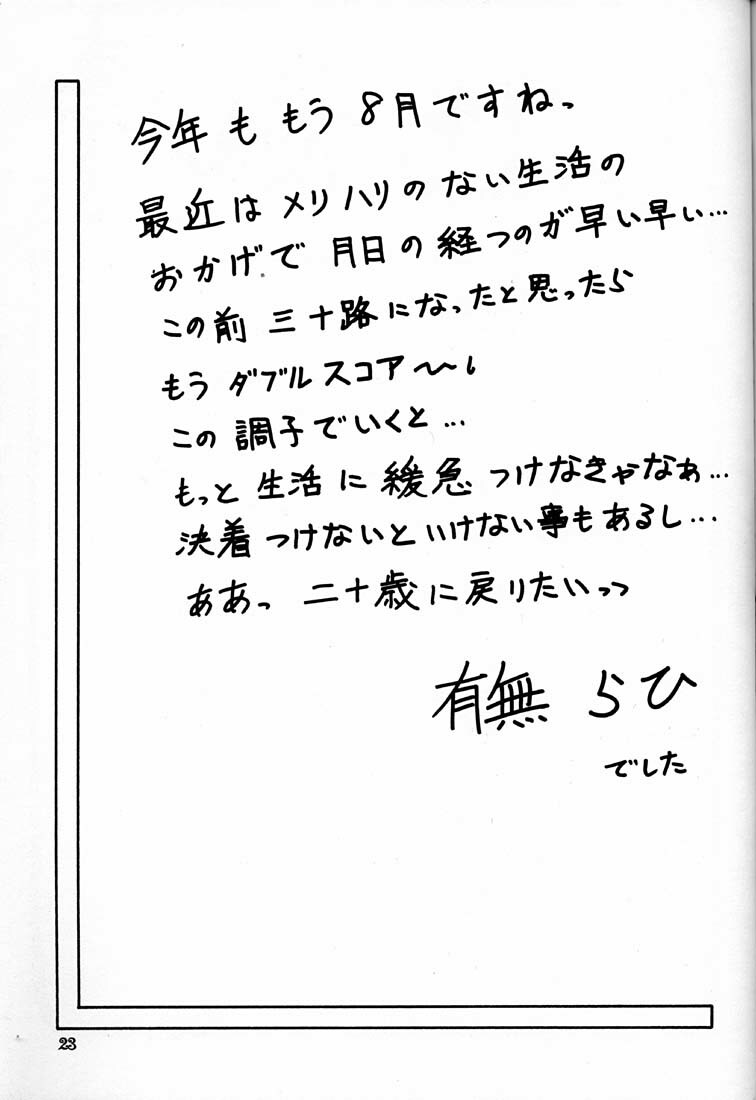 今年ももう8月ですねっ
最近はメリハリのない生活の
おかげで月日の経つのが早い早い…
この前三十路になったと思ったら
もうダブルスコア〜〜。
この調子でいくと…
もっと生活に緩急つけなきゃなぁ…
決着つけないといけない事もあるし…
ああっ二十歳に戻りたいっっ
有無らひ
でした
23